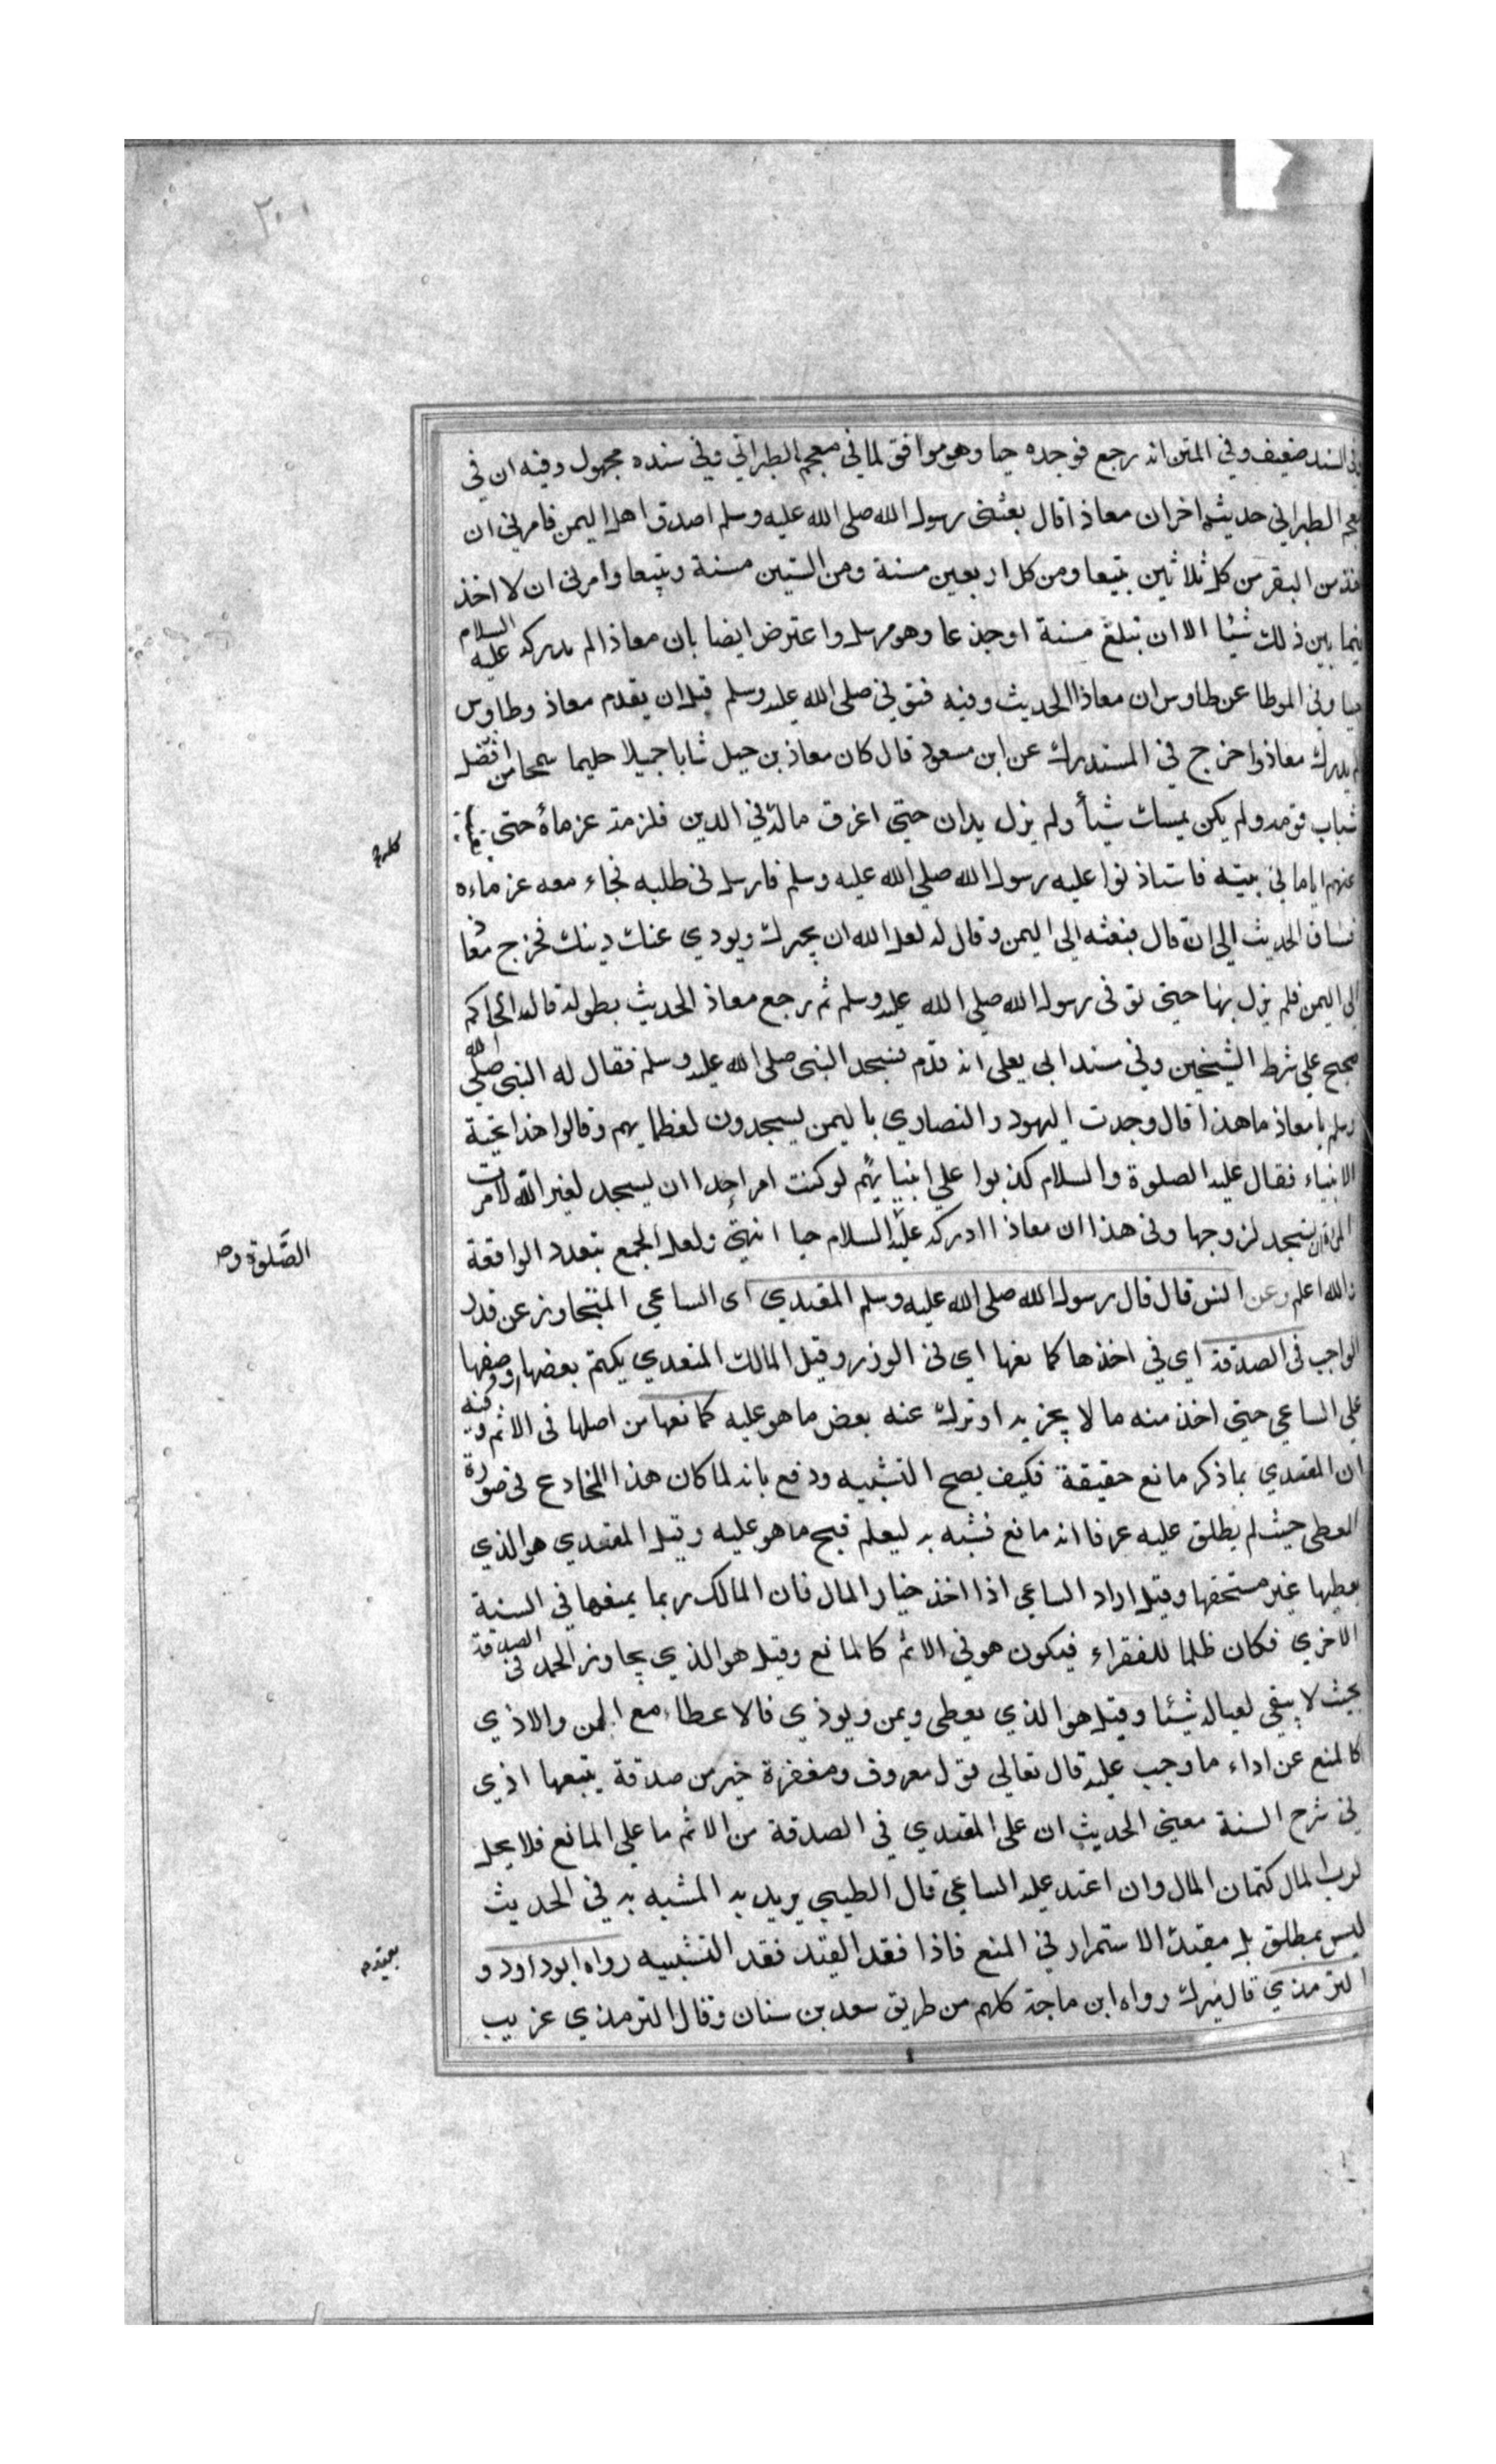 ٢٠٠
في السند ضعيف وفي المتن انه رجع فوجده حيا وهو موافق لما في معجم الطبراني وفي سنده مجهول وفيه ان في
معجم الطبراني حديث اخر ان معاذا قال بعثني رسول الله صلى الله عليه وسلم اصدق اهل اليمن فامرني ان
اخذ من البقر من كل ثلاثين تبيعا ومن كل اربعين مسنة ومن الستين مسنة وتبيعا وامرني ان لا اخذ
فيما بين ذلك شيئا الا ان تبلغ مسنة او جذعا وهو مرسل واعترض ايضا بان معاذا لم يدركه عليه السلام
حيا وفي الموطا عن طاوس ان معاذا الحديث وفيه فتوفي صلى الله عليه وسلم قبل ان يقدم معاذ وطاوس
لم يدرك معاذ واخرج في المستدرك عن ابن مسعود قال كان معاذ بن جبل شابا جميلا حليما سمحا من افضل
شباب قومه ولم يكن يمسك شيأ ولم يزل يدان حتى اغرق ماله في الدين فلزمته غرماؤه حتى
عنهم اياما في بيته فاستاذنوا عليه رسول الله صلى الله عليه وسلم فارسل في طلبه فجاء معه غرماءه
فساق الحديث الى ان قال فبعثه الى اليمن وقال له لعل الله ان يجبرك ويودي عنك دينك فخرج معاذ
الى اليمن فلم يزل بها حتى توفى رسول الله صلى الله عليه وسلم ثم رجع معاذ الحديث بطوله قال الحاكم
صحيح على شرط الشيخين وفي مسند ابى يعلى انه قدم فسجد للنبى صلى الله عليه وسلم فقال له النبى صلى الله
وسلم يا معاذ ما هذا قال وجدت اليهود والنصاري باليمن يسجدون لعظمايهم وقالوا هذا تحية
الانبياء فقال عليه الصلوة والسلام كذبوا على انبيايهم لو كنت امر احدا ان يسجد لغير الله لامرت
المراة ان تسجد لزوجها وفي هذا ان معاذا ادركه عليه السلام حيا انتهى ولعل الجمع بتعدد الواقعة
الصَّلوة وص
والله اعلم وعن انس قال قال رسول الله صلى الله عليه وسلم المعتدي اى الساعي المتجاوز عن قدر
الواجب فى الصدقة اي في اخذها كمانعها اي في الوزر وقيل المالك المتعدي يكتم بعضها ووصفها
على الساعي حتى اخذ منه ما لا يجزيه او ترك عنه بعض ما هو عليه كمانعها من اصلها فى الاثم وفيه
ان المعتدي بما ذكر مانع حقيقة فكيف يصح التشبيه ودفع بانه لما كان هذا المخادع في صورة
المعطى حيث لم يطلق عليه عرفا انه مانع فشبه به ليعلم قبح ما هو عليه وقيل المعتدي هو الذي
يعطيها غير مستحقها وقيل اراد الساعي اذا اخذ خيار المال فان المالك ربما يمنعها في السنة
الاخري فكان ظلما للفقراء فيكون هو في الاثم كالمانع وقيل هو الذي يجاوز الحد في الصدقة
بحيث لا يبقى لعياله شيئا وقيل هو الذي يعطى ويمن ويوذي فالاعطاء مع المن والاذي
كالمنع عن اداء ما وجب عليه قال تعالى قول معروف ومغفرة خير من صدقة يتبعها اذي
في شرح السنة معنى الحديث ان على المعتدي في الصدقة من الاثم ما على المانع فلا يحل
لرب المال كتمان المال وان اعتد عليه الساعي قال الطيبي يريد به المشبه به في الحديث
ليس بمطلق بل مقيد الاستمرار في المنع فاذا فقد القيد فقد التشبيه رواه ابو داود و
الترمذي قال ميرك رواه ابن ماجة كلهم من طريق سعد بن سنان وقال الترمذي غريب